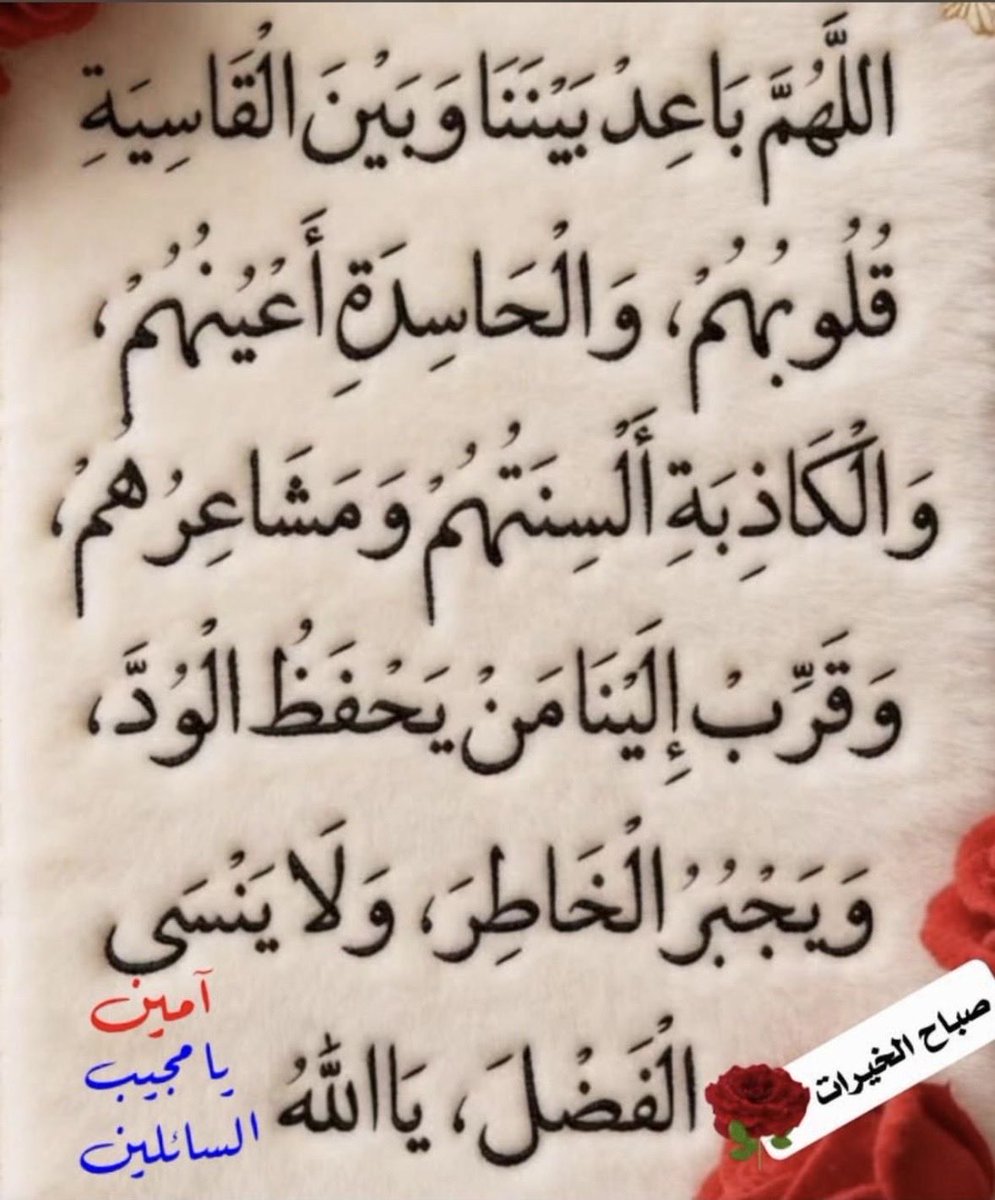 اللَّهُمَّ بَاعِدْ بَيْنَنَا وَبَيْنَ الْقَاسِيَةِ
قُلُوبُهُمْ، وَالْحَاسِدَةِ أَعْيُنُهُمْ،
وَالْكَاذِبَةِ أَلْسِنَتُهُمْ وَمَشَاعِرُهُمْ،
وَقَرِّبْ إِلَيْنَا مَنْ يَحْفَظُ الْوُدَّ،
وَيَجْبُرُ الْخَاطِرَ، وَلَا يَنْسَى
الْفَضْلَ، يَا اللَّهُ
آمين
يا مجيب
السائلين
صباح الخيرات